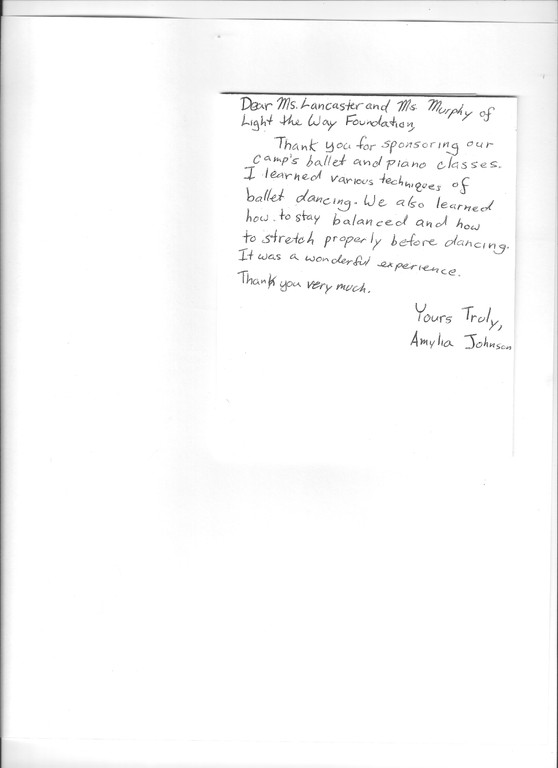 Dear Ms. Lancaster and Ms. Murphy of
Light the Way Foundation,
Thank you for sponsoring our
camp's ballet and piano classes.
I learned various techniques of
ballet dancing. We also learned
how to stay balanced and how
to stretch properly before dancing.
It was a wonderful experience.
Thank you very much.
Yours Truly,
Amylia Johnson